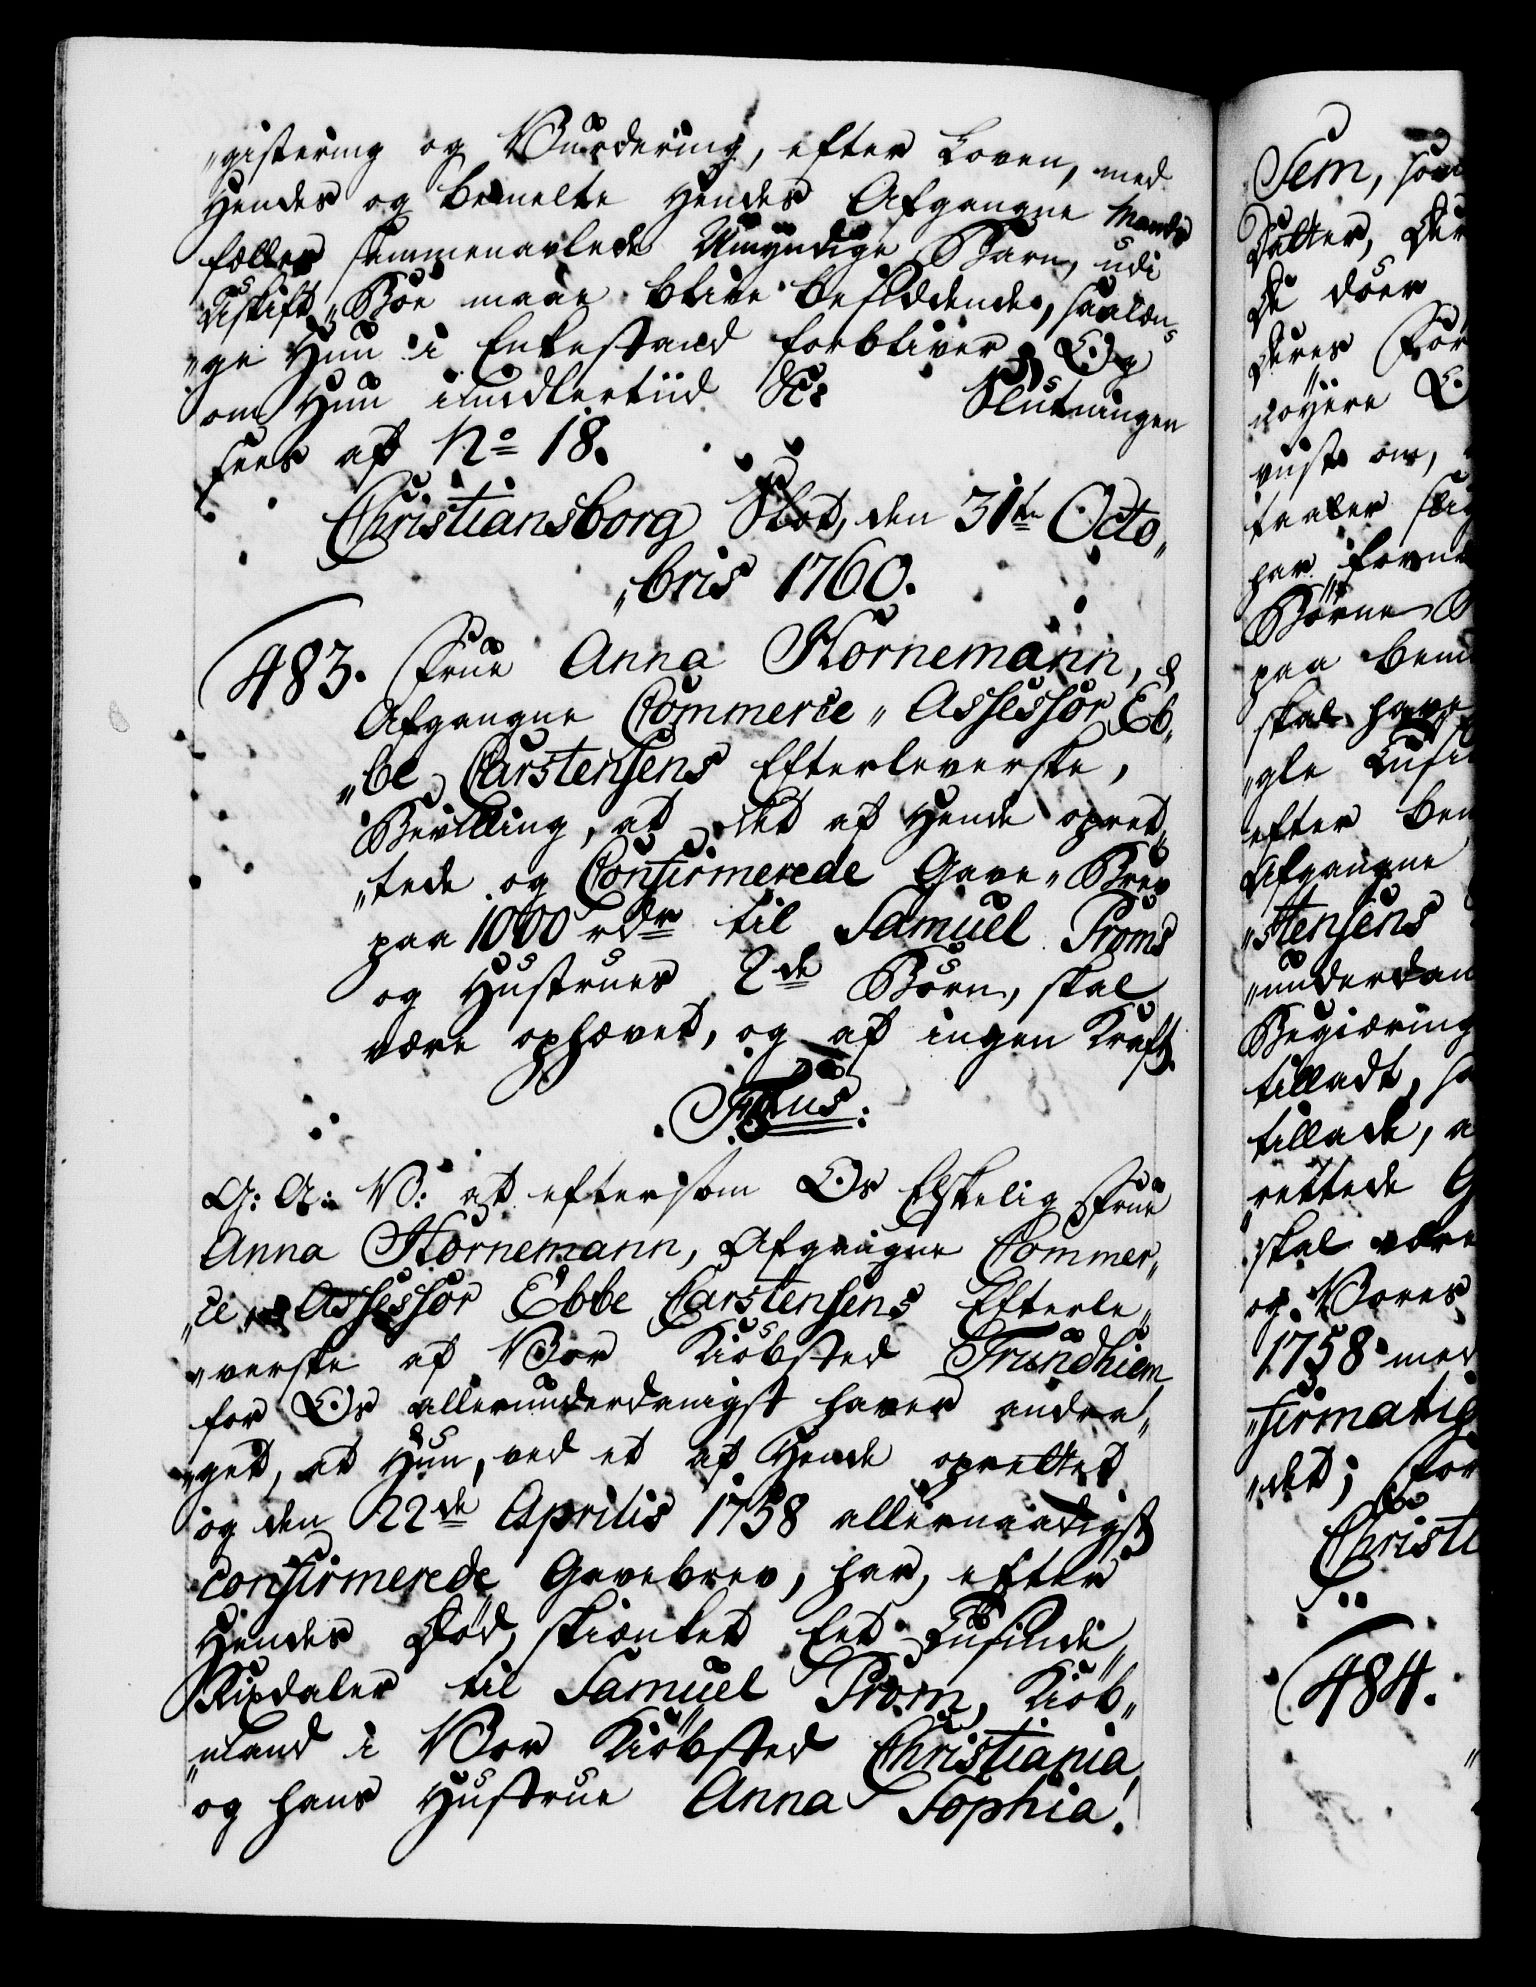 „gistering og Vurdering, efter Loven, med
Hendes og bemelte Hendes Afgangne Mands
fælles sammenavlede Umyndige Barn, udi
Uskift„ Boe maae blive besiddende, saalæn„
„ge Hun i Enkestand forbliver; Og
om Hun imidlertiid &c: Slutningen
sees af No 18.
Christiansborg Slot, den 31te Octo„
„bris 1760.
483. Frue Anna Hornemann,
Afgangne Commerce„ Assessor Eb„
„be Carstensens Efterleverske,
Bevilling, at det af Hende opret„
„tede og Confirmerede Gave„ Brev
paa 1000 rdr til Samuel Proms
og Hustrues 2de Börn, skal
være ophævet, og af ingen Kraft.
F5tus:
G: A: V: at eftersom Os Elskelig Frue
Anna Hornemann, Afgangne Commer„
„ce„ Assessor Ebbe Carstensens Efterle„
„verske af Vor Kiöbsted Trundhiem,
for Os allerunderdanigst haver andra„
„get, at Hun, ved et af Hende oprettet
og den 22de Aprilis 1758 allernaadigst
confirmerede Gavebrev, har, efter
Hendes Död, skiænket Eet Tusinde
Rixdaler til Samuel Prom, Kiöb„
„mand i Vor Kiöbsted Christiania,
og hans Hustrue Anna Sophia
Sem,
Datter,
De döer
Deres For
nöyere
vist om,
har
Börne
paa bem
skal have
efter ben
Afgangne
„stensens
„underdan
Begiæring
tilladt,
tillade, a
rettede G
skal være
og Vores
1758 med
„firmatig
„det; For
Christi
484.